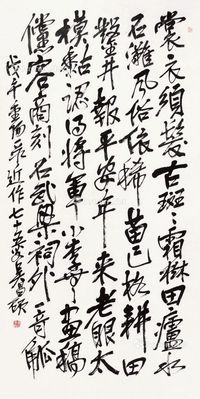 裳衣須髮古斑〻霜樹田廬水
石灘風俗依稀苗已 耕田
鑿井報平安年來老眼太
模黏認得將軍小李 畫稿
儻容商刻石武梁祠外一奇觚
戊午重陽录近作七十五叟吳昌碩